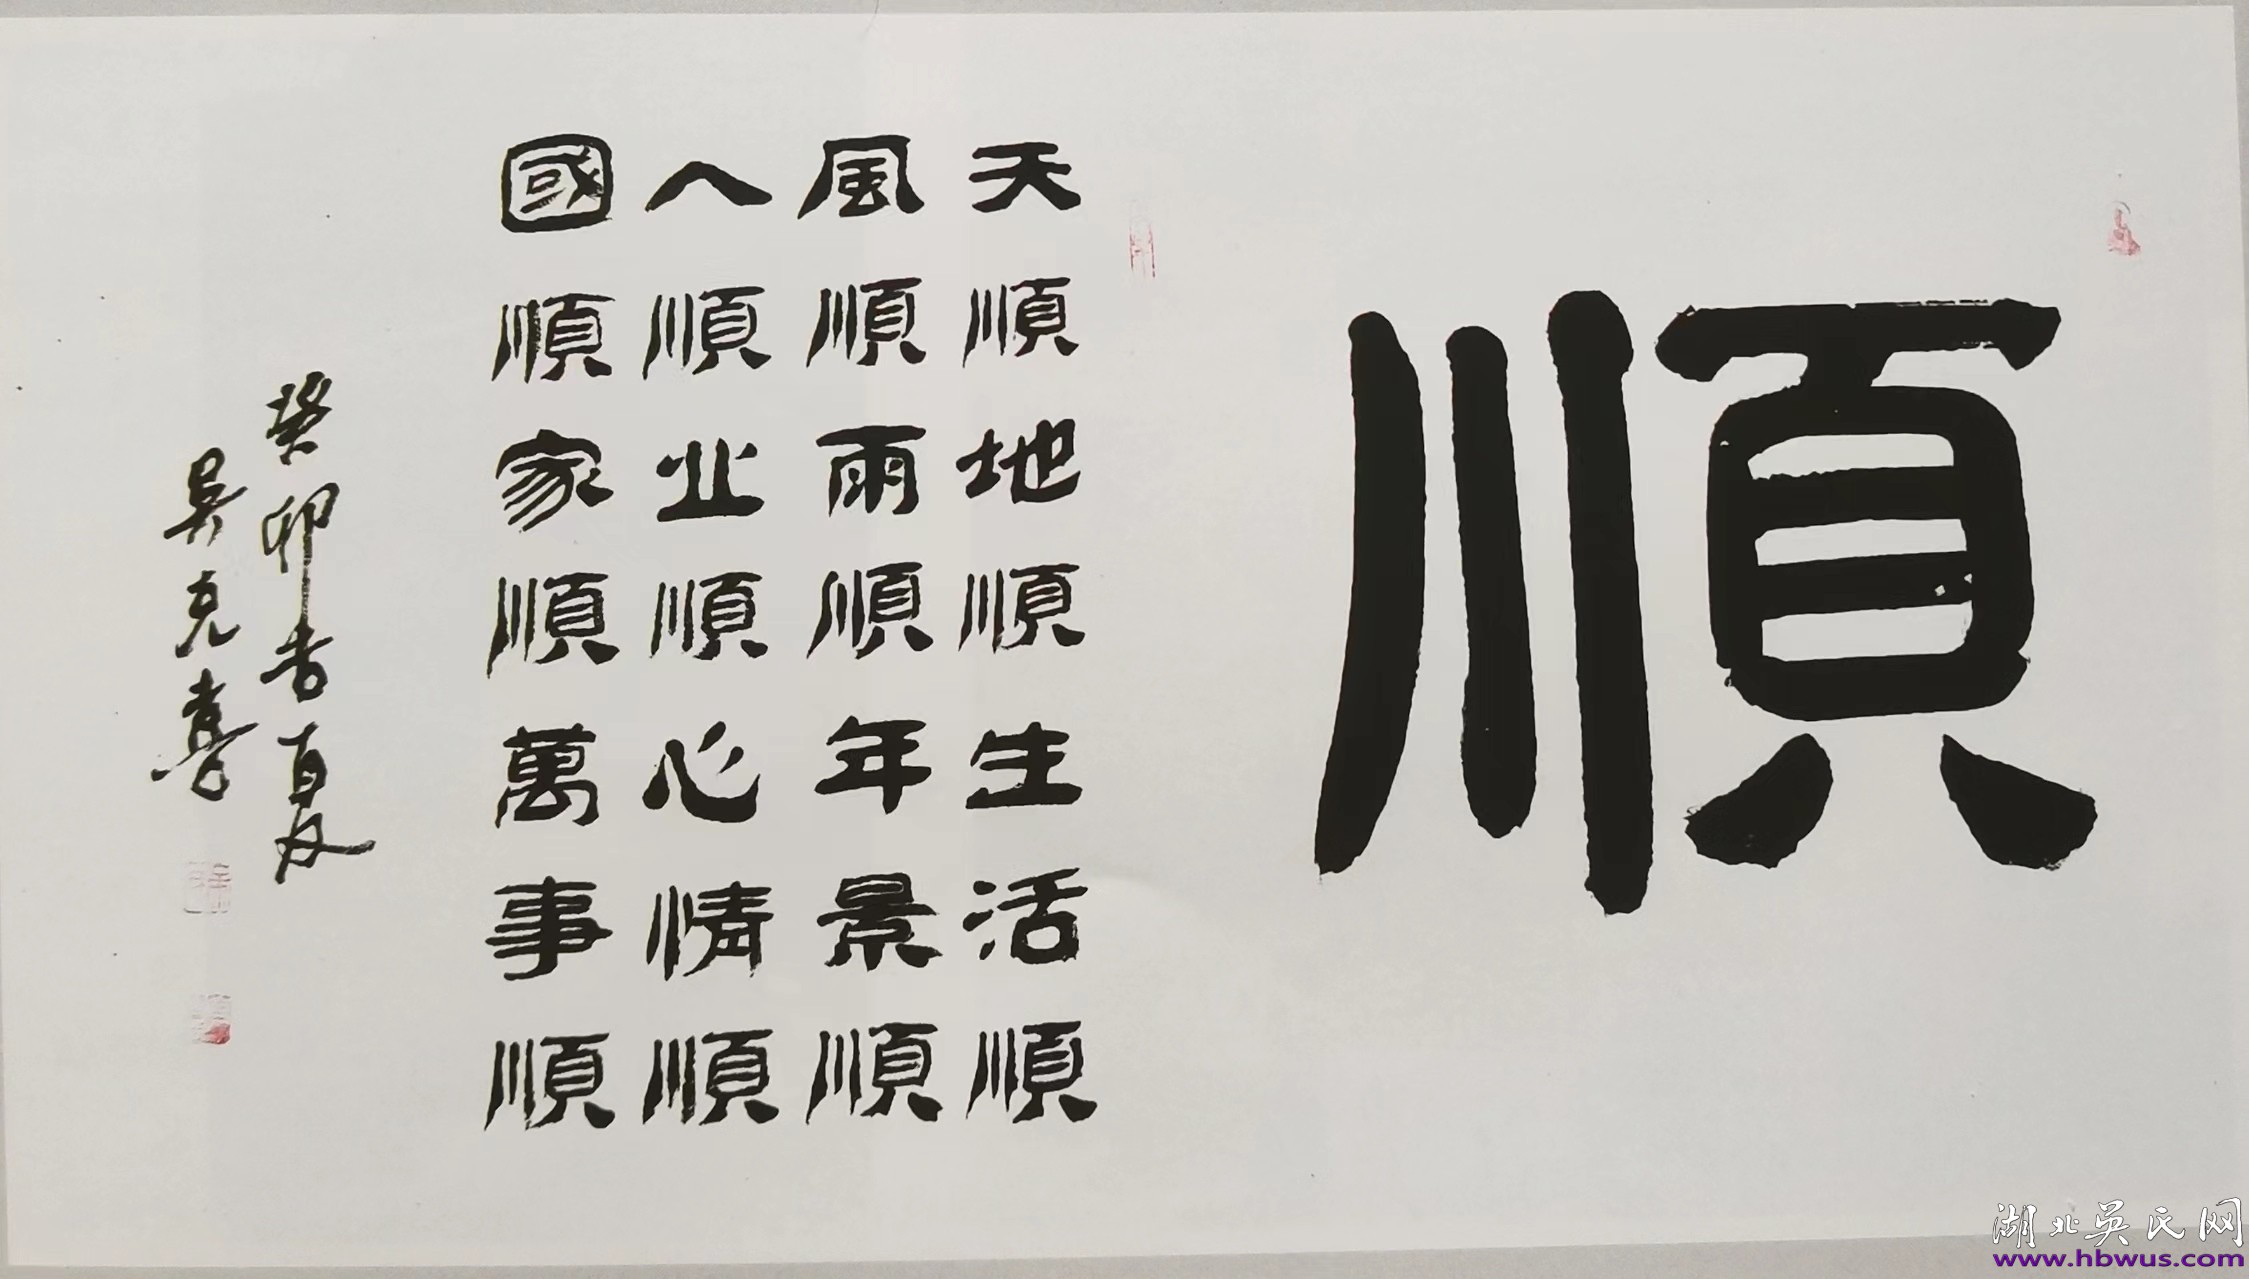 順
天順地順生活順
風順雨順年景順
人順业順心情順
國順家順萬事順
癸卯者夏
吴克孝
湖北吴氏网
www.hbwus.com